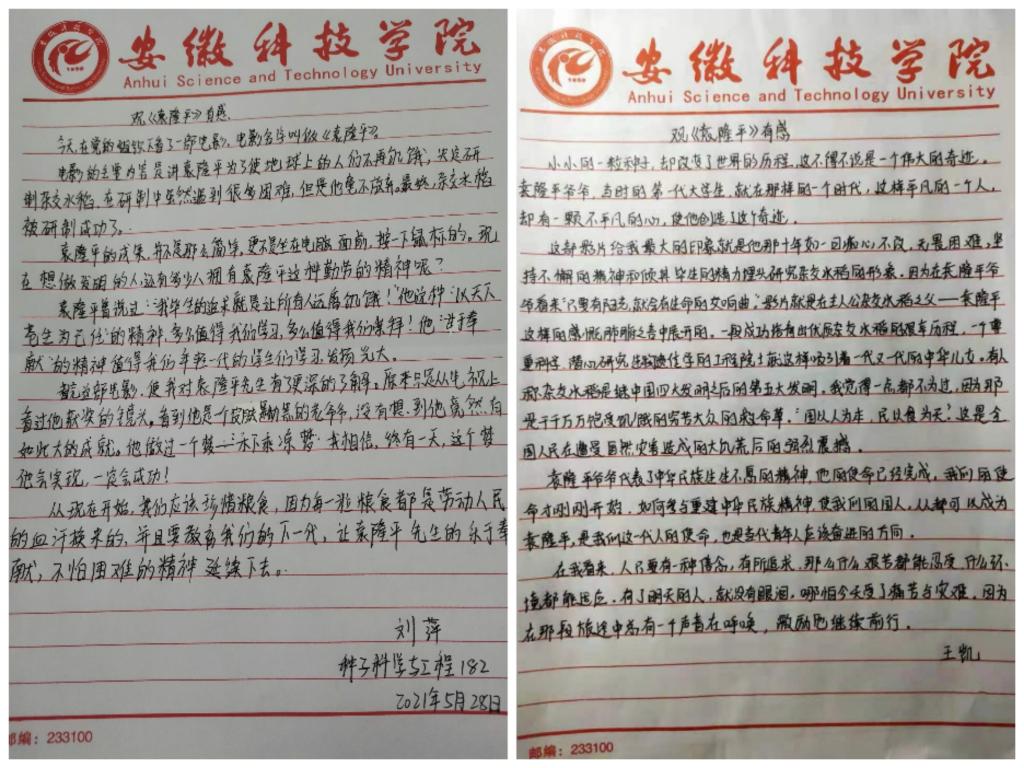 安徽科技学院
Anhui Science and Technology University
观《袁隆平》有感
今天在党的组织下看了一部电影，电影名字叫做《袁隆平》。
电影的主要内容是讲袁隆平为了使地球上的人们不再饥饿，决定研
制杂交水稻，在研制中虽然遇到很多困难，但是他毫不放弃，最终，杂交水稻
被研制成功了。
袁隆平的成果，并不是那么简单，更不是坐在电脑面前，按一下鼠标的。现
在想做发明的人，还有多少人拥有袁隆平这种勤劳的精神呢？
袁隆平曾说过：“我毕生的追求就是让所有人远离饥饿！”他这种“以天下
苍生为己任”的精神，多么值得我们学习，多么值得我们崇拜！他“甘于奉
献”的精神值得我们年轻一代的学生们学习，发扬光大。
看完这部电影，使我对袁隆平先生有了更深的了解。原本只是从电视上
看过他获奖的镜头，看到他是个皮肤黝黑的老爷爷，没有想到他竟然有
如此大的成就。他做过一个梦——“禾下乘凉梦”我相信，终有一天，这个梦
他会实现，一定会成功！
从现在开始，我们应该珍惜粮食，因为每一粒粮食都是劳动人民
的血汗换来的，并且要教育我们的下一代，让袁隆平先生的乐于奉
献，不怕困难的精神延续下去。
刘萍
种子科学与工程182
2021年5月28日
邮编：233100
安徽科技学院
Anhui Science and Technology University
观《袁隆平》有感
小小的一粒种子，却改变了世界的历程，这不得不说是一个伟大的奇迹。
袁隆平爷爷，当时的第一代大学生，就在那样的一个时代，这样平凡的一个人，
却有一颗不平凡的心，使他创造了这个奇迹。
这部影片给我最大的印象就是他那十年如一日痴心不改，无畏困难，坚
持不懈的精神和倾其毕生的精力埋头研究杂交水稻的形象。因为在袁隆平爷
爷看来“只要有阳光，就会有生命的交响曲”。影片就是在主人公杂交水稻之父——袁隆平
这样的感慨之音中展开的。一段成功培育出优质杂交水稻的艰辛历程，一个尊
重科学，潜心研究生物遗传学的工程院士就这样吸引着一代又一代的中华儿女。有人
称杂交水稻是继中国四大发明之后的第五大发明，我觉得一点都不为过，因为那
是千千万万饱受饥饿的穷苦大众的救命草。“国以人为本，民以食为天”这是全
国人民在遭受自然灾害造成的大饥荒后的强烈震撼。
袁隆平爷爷代表了中华民族生生不息的精神，他的使命已经完成，我们的使
命才刚刚开始，如何参与重建中华民族精神，使我们的国人，人人都可以成为
袁隆平，是我们这一代人的使命，也是当代青年人应该奋进的方向。
在我看来，人只要有一种信念，有所追求，那么什么艰苦都能忍受，什么环
境都能适应。有了明天的人，就没有眼泪，哪怕今天受了痛苦与灾难，因为
在那段旅途中总有一个声音在呼唤，激励他继续前行。
王凯
邮编：233100